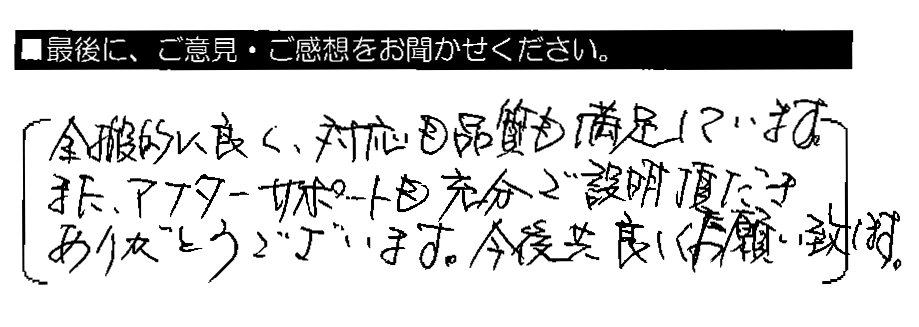 ■最後に、ご意見・ご感想をお聞かせください。
全搬的に良く、対応も品質も満足しています。
また、アフターサポートも充分で説明頂だき
ありがとうございます。今後共良しくお願い致します。